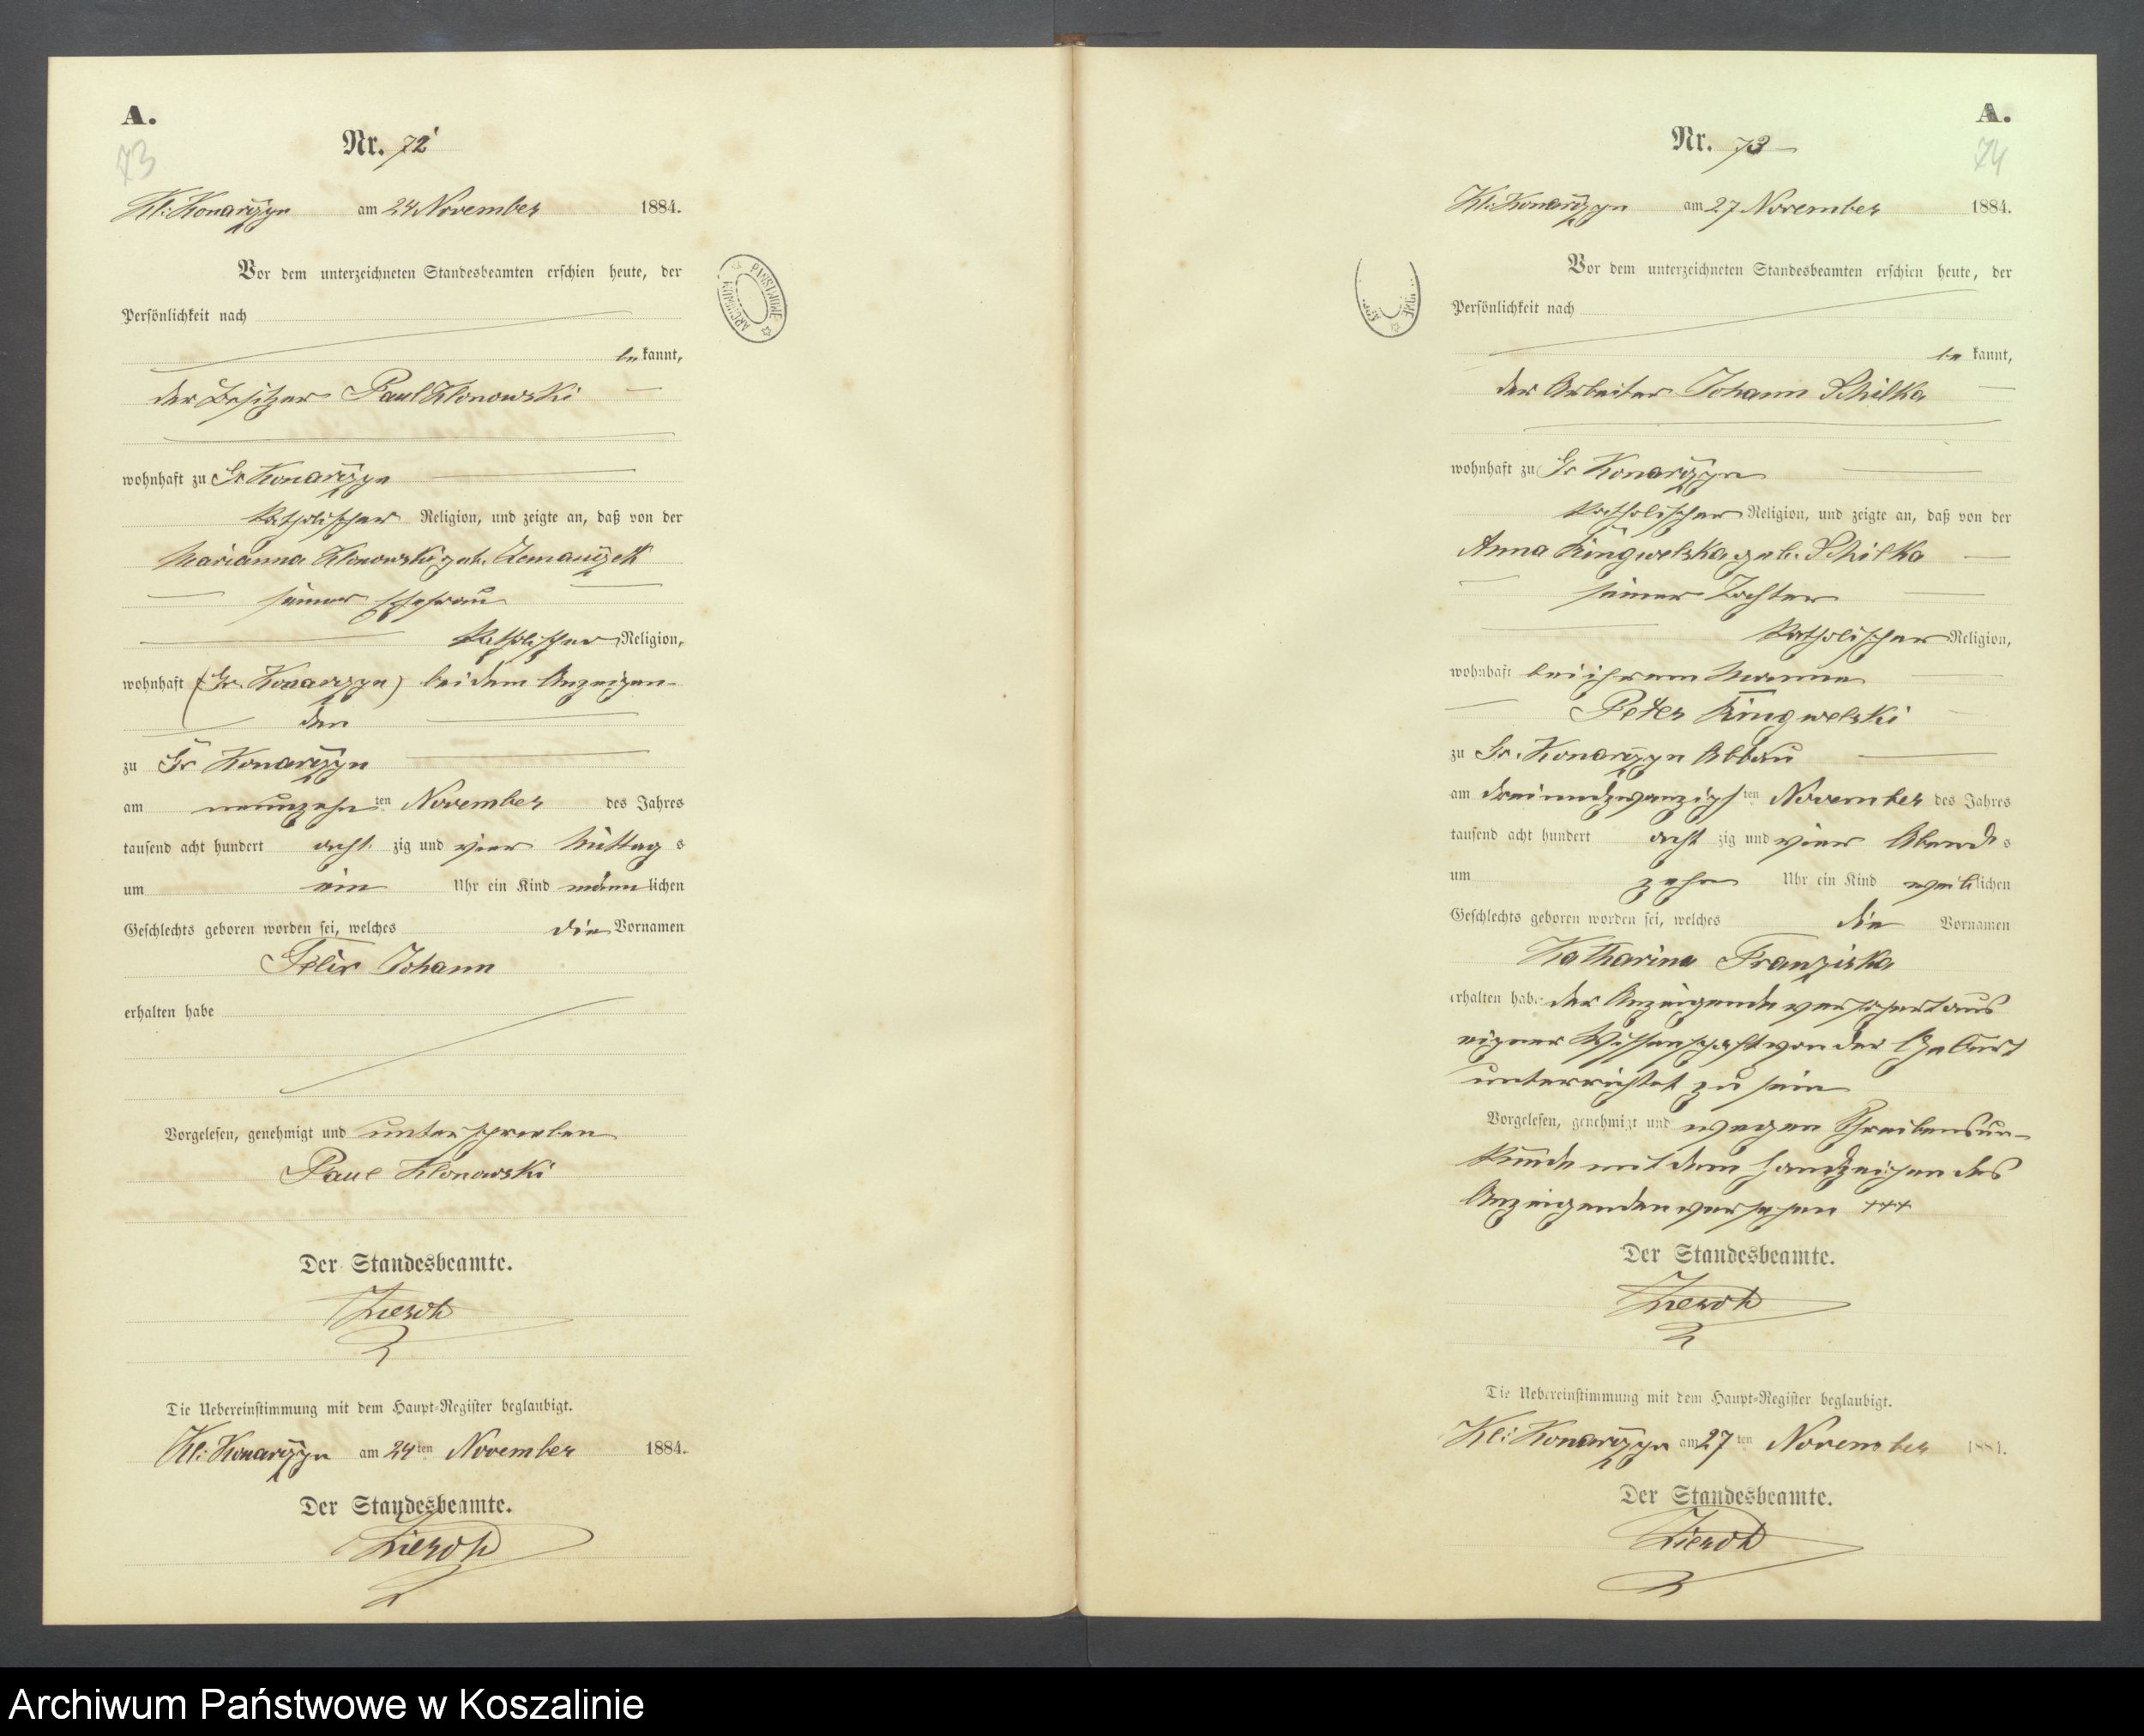 A.
73
Nr. 72
Kl: Konarczyn am 24 November 1884.
Vor dem unterzeichneten Standesbeamten erschien heute, der
Persönlichkeit nach
be kannt,
der Besitzer Paul Klonowski
wohnhaft zu Gr Konarczyn
katholischer Religion, und zeigte an, daß von der
Marianna Klonowski geb. Zemanczek
seiner Ehefrau
katholischer Religion,
wohnhaft (Gr. Konarczyn) bei dem Anzeigen-
den
zu Gr Konarczyn
am neunzehn ten November des Jahres
tausend acht hundert acht zig und vier Mittag s
um ein Uhr ein Kind männ lichen
Geschlechts geboren worden sei, welches die Vornamen
Felix Johann
erhalten habe
Vorgelesen, genehmigt und unterschrieben
Paul Klonowski
Der Standesbeamte.
Die Uebereinstimmung mit dem Haupt-Register beglaubigt.
Kl: Konarczyn am 24 ten November 1884.
Der Standesbeamte.
ARCHIWUM PAŃSTWOWE
A.
74
Nr. 73
Kl: Konarczyn am 27 November 1884.
Vor dem unterzeichneten Standesbeamten erschien heute, der
Persönlichkeit nach
be kannt,
der Arbeiter Johann Schilka
wohnhaft zu Gr Konarczyn
katholischer Religion, und zeigte an, daß von der
Anna Ringwelska geb. Schilka
seiner Tochter
katholischer Religion,
wohnhaft bei ihrem Manne
Peter Ringwelski
zu Gr. Konarczyn Abbau
am dreiundzwanzigs ten November des Jahres
tausend acht hundert acht zig und vier Abend s
um zehn Uhr ein Kind weib lichen
Geschlechts geboren worden sei, welches die Vornamen
Katharina Franziska
erhalten habe der Anzeigende versichert aus
eigner Wissenschaft von der Geburt
unterrichtet zu sein
Vorgelesen, genehmigt und wegen Schreibensun-
kunde mit dem Handzeichen des
Anzeigenden versehen +++
Der Standesbeamte.
Die Uebereinstimmung mit dem Haupt-Register beglaubigt.
Kl: Konarczyn am 27 ten November 1884.
Der Standesbeamte.
Archiwum Państwowe w Koszalinie